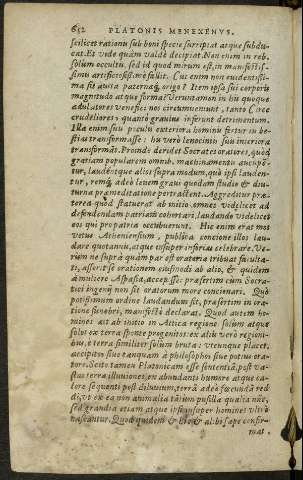 652 PLATONIS MENEXENVS.
scilicet rationi sub boni specie surripiat atque subdu-
cat. Et vide quàm valde decipiat. Non enim in reb.
solùm occultu, sed id quod mirum est, in manifestis-
simis artificiosissimè fallit. Cui enim non euidentissi-
ma sit auita paternaq́; origo? Item ipsa sui corporis
magnitudo atque forma? Veruntamen in his quoque
adulatores venefici nos circumueniunt, tanto Circe
crudeliores, quanto grauius inferunt detrimentum.
Illa enim suis poculis exteriora hominis fertur in be-
stias transformasse: hi verò lenocinio suo interiora
transformant. Proinde deridet Socrates oratores, quòd
gratiam popularem omnib. machinamentis aucupen-
tur, laudentque alios supra modum, quò ipsi lauden-
tur, remq́; adeò leuem graui quadam studio & diu-
turna praemeditatione pertractent. Aggreditur prae-
terea quod statuerat ab initio, omnes videlicet ad
defendendam patriam cohortari, laudando videlicet
eos qui pro patria occubuerunt. Hic enim erat mos
vetus Atheniensium, publica concione illos lau-
dare quotannis, atque insuper inferias celebrare. Ve-
rùm ne suprà quàm par est oratoria tribuat faculta-
ti, asserit se orationem eiusmodi ab alio, & quidem
à muliere Aspasia, accepisse: praesertim cum Socra-
tici ingenij non sit oratorum more concinnari. Quo
potissimum ordine laudandum sit, praesertim in ora-
tione funebri, manifestò declarat. Quod autem ho-
mines ait ab initio in Attica regione solùm atque
solo ex terra sponte progenitos: ex alijs verò regioni-
bus, è terra similiter solùm bruta: vtcunque placet,
accipito siue tanquam à philosopho siue potius ora-
tore. Scito tamen Platonicam esse sententiã, post va-
stas terrae illuuiones, ex abundanti humore atque ca-
lore sequenti post diluuium, terrã adeò foecundã red-
di, vt ex ea non animalia tãtùm pusilla qualia nũc,
sed grandia etiam atque ipsi insuper homines vltrò
nascantur. Quod quidem & hîc & alibi saepe confir-
mat.